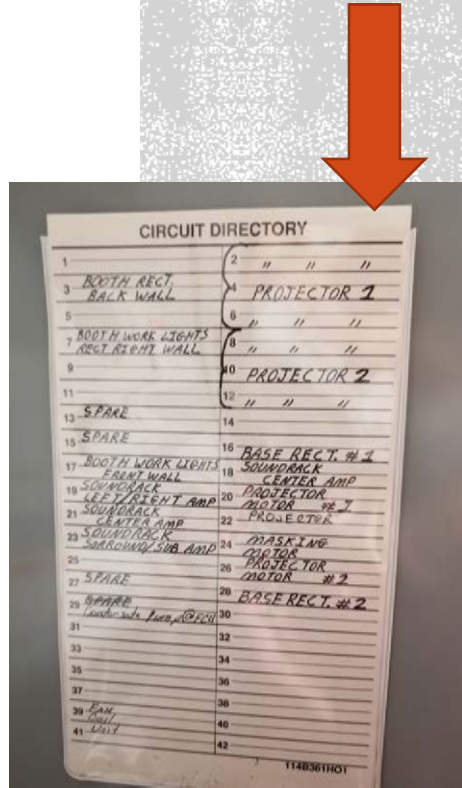 CIRCUIT DIRECTORY
1
3 BOOTH RECT.
BACK WALL
5
7 BOOTH WORK LIGHTS
RECT RIGHT WALL
9
11
13 SPARE
15 SPARE
17 BOOTH WORK LIGHTS
FRONT WALL
19 SOUNDRACK
LEFT/RIGHT AMP
21 SOUNDRACK
CENTER AMP
23 SOUNDRACK
SORROUND/SUB AMP
25
27 SPARE
29 SPARE
Condensate Pump @ FCU
31
33
35
37
39 Fan
Coil
41 Unit
2 " " "
4 PROJECTOR 1
6 " " "
8 " " "
10 PROJECTOR 2
12 " " "
14
16 BASE RECT. #1
18 SOUNDRACK
CENTER AMP
20 PROJECTOR
MOTOR #1
22 PROJECTOR
24 MASKING
MOTOR
26 PROJECTOR
MOTOR #2
28 BASE RECT. #2
30
32
34
36
38
40
42
114B361H01